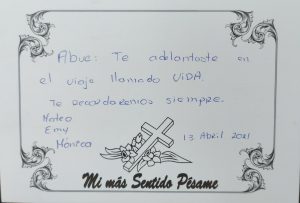 Abue: Te adelantaste en
el viaje llamado VIDA.
Te recordaremos siempre.
Mateo
Emy
Mónica
13 Abril 2021
Mi más Sentido Pésame